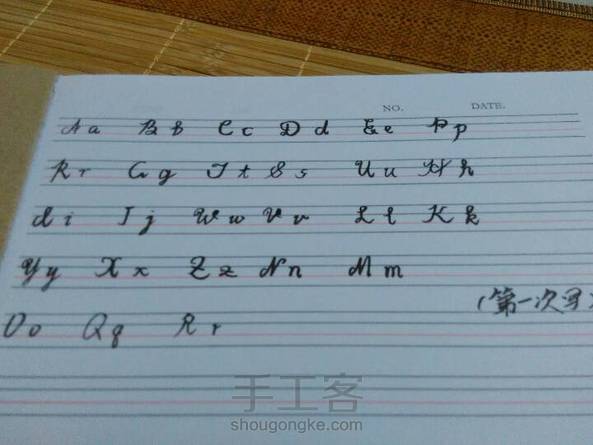 NO. DATE.
A a B b C c D d E e P p
R r G g T t S s U u H h
I i J j W w V v L l K k
Y y X x Z z N n M m
(第一次写)
O o Q q R r
手工客
shougongke.com